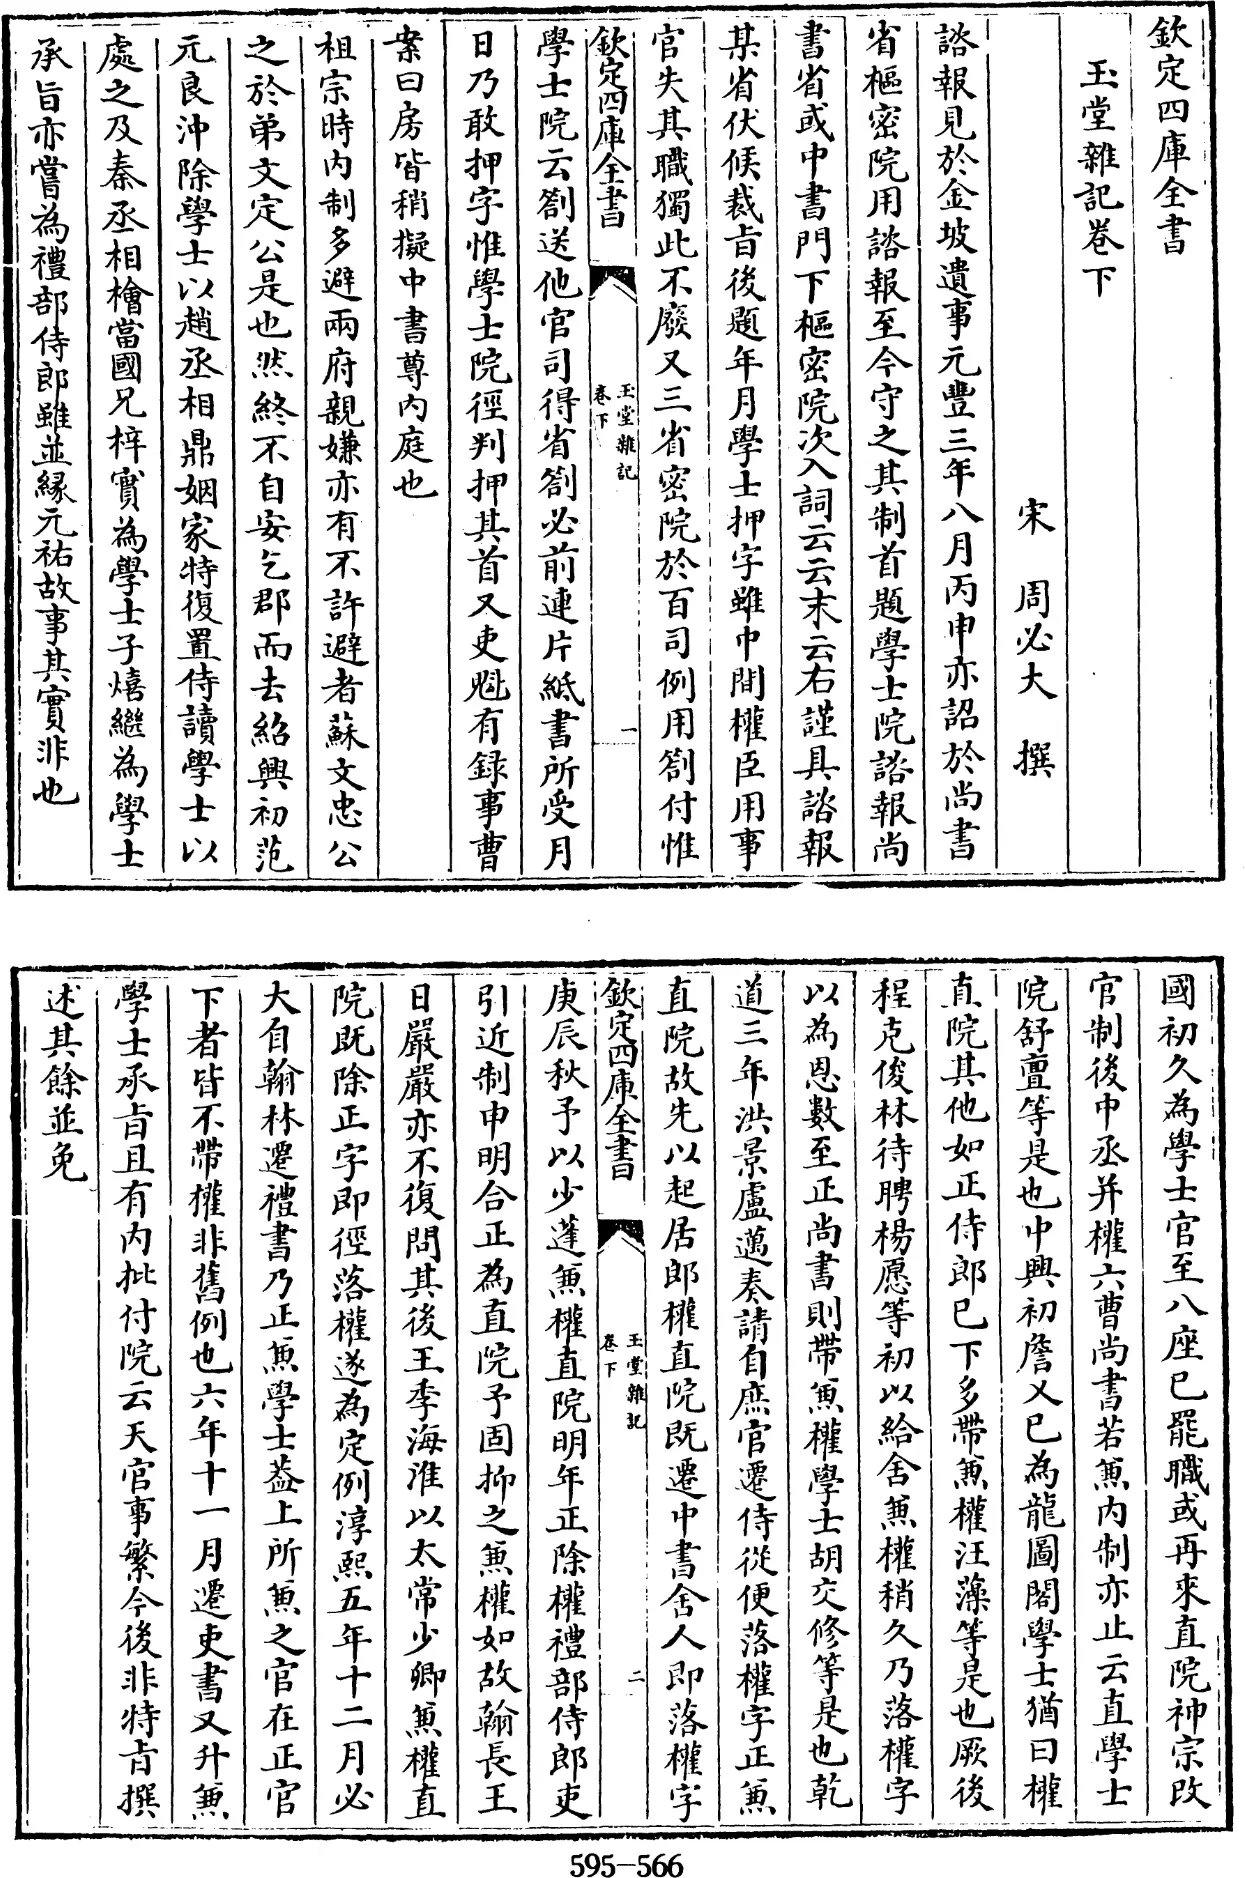 欽定四庫全書
玉堂雜記卷下
宋 周必大 撰
諮報見於金坡遺事元豐三年八月丙申亦詔於尚書
省樞密院用諮報至今守之其制首題學士院諮報尚
書省或中書門下樞密院次入詞云云末云右謹具諮報
某省伏候裁旨後題年月學士押字雖中間權臣用事
官失其職獨此不廢又三省密院於百司例用劄付惟
欽定四庫全書
玉堂雜記
卷下
一
學士院云劄送他官司得省劄必前連片紙書所受月
日乃敢押字惟學士院徑判押其首又吏魁有録事曹
案曰房皆稍擬中書尊内庭也
祖宗時内制多避兩府親嫌亦有不許避者蘇文忠公
之於弟文定公是也然終不自安乞郡而去紹興初范
元良沖除學士以趙丞相鼎姻家特復置侍讀學士以
處之及秦丞相檜當國兄梓實為學士子熺繼為學士
承旨亦嘗為禮部侍郎雖並緣元祐故事其實非也
國初久為學士官至八座已罷職或再來直院神宗改
官制後中丞并權六曹尚書若兼内制亦止云直學士
院舒亶等是也中興初詹乂已為龍圖閣學士猶曰權
直院其他如正侍郎已下多帶兼權汪藻等是也厥後
程克俊林待聘楊愿等初以給舍兼權稍久乃落權字
以為恩數至正尚書則帶兼權學士胡交修等是也乾
道三年洪景盧邁奏請自庶官遷侍從便落權字正兼
直院故先以起居郎權直院既遷中書舍人即落權字
欽定四庫全書
玉堂雜記
卷下
二
庚辰秋予以少蓬兼權直院明年正除權禮部侍郎吏
引近制申明合正為直院予固抑之兼權如故翰長王
日嚴嚴亦不復問其後王季海淮以太常少卿兼權直
院既除正字即徑落權遂為定例淳熙五年十二月必
大自翰林遷禮書乃正兼學士蓋上所兼之官在正官
下者皆不帶權非舊例也六年十一月遷吏書又升兼
學士承旨且有内批付院云天官事繁今後非特旨撰
述其餘並免
595-566